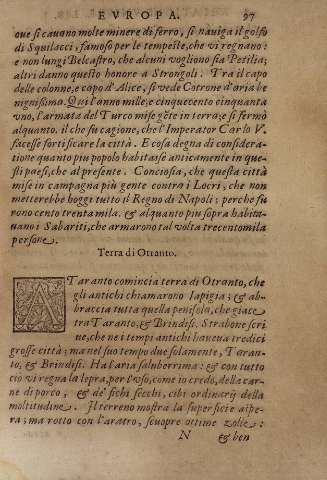 EVROPA. 97
oue si cauano molte minere di ferro, si nauiga il golfo
di Squilacci, famoso per le tempeste, che vi regnano:
e non lungi Belcastro, che alcuni vogliono sia Petilia;
altri danno questo honore a Strongoli. Tra il capo
delle colonne, e capo d'Alice, si vede Cotrone d'aria be
nignissima. Qui l'anno mille, e cinquecento cinquanta
vno, l'armata del Turco mise gēte in terra; e si fermò
alquanto. il che fu cagione, che l'Imperator Carlo V.
facesse fortificare la città. E cosa degna di considera-
tione quanto piu popolo habitasse anticamente in que-
sti paesi, che al presente. Conciosia, che questa città
mise in campagna più gente contra i Locri, che non
metterebbe hoggi tutto il Regno di Napoli; perche fu
rono cento trenta mila. & alquanto piu sopra habita-
uano i Sabariti, che armarono tal volta trecento mila
persone.
Terra di Otranto.
A Taranto comincia terra di Otranto, che
gli antichi chiamarono Iapigia; & ab-
braccia tutta quella penisola, che giace
tra Taranto, & Brindesi. Strabone scri
ue, che ne i tempi antichi haueua tredici
grosse città; ma nel suo tempo due solamente, Taran-
to, & Brindesi. Ha l'aria saluberrima: & con tutto
ciò vi regna la lepra, per l'vso, come io credo, della car-
ne di porco, & de' fichi secchi, cibi ordinarij della
moltitudine. Il terreno mostra la superficie aspe-
ra; ma rotto con l'aratro, scuopre ottime zolle:
N & ben